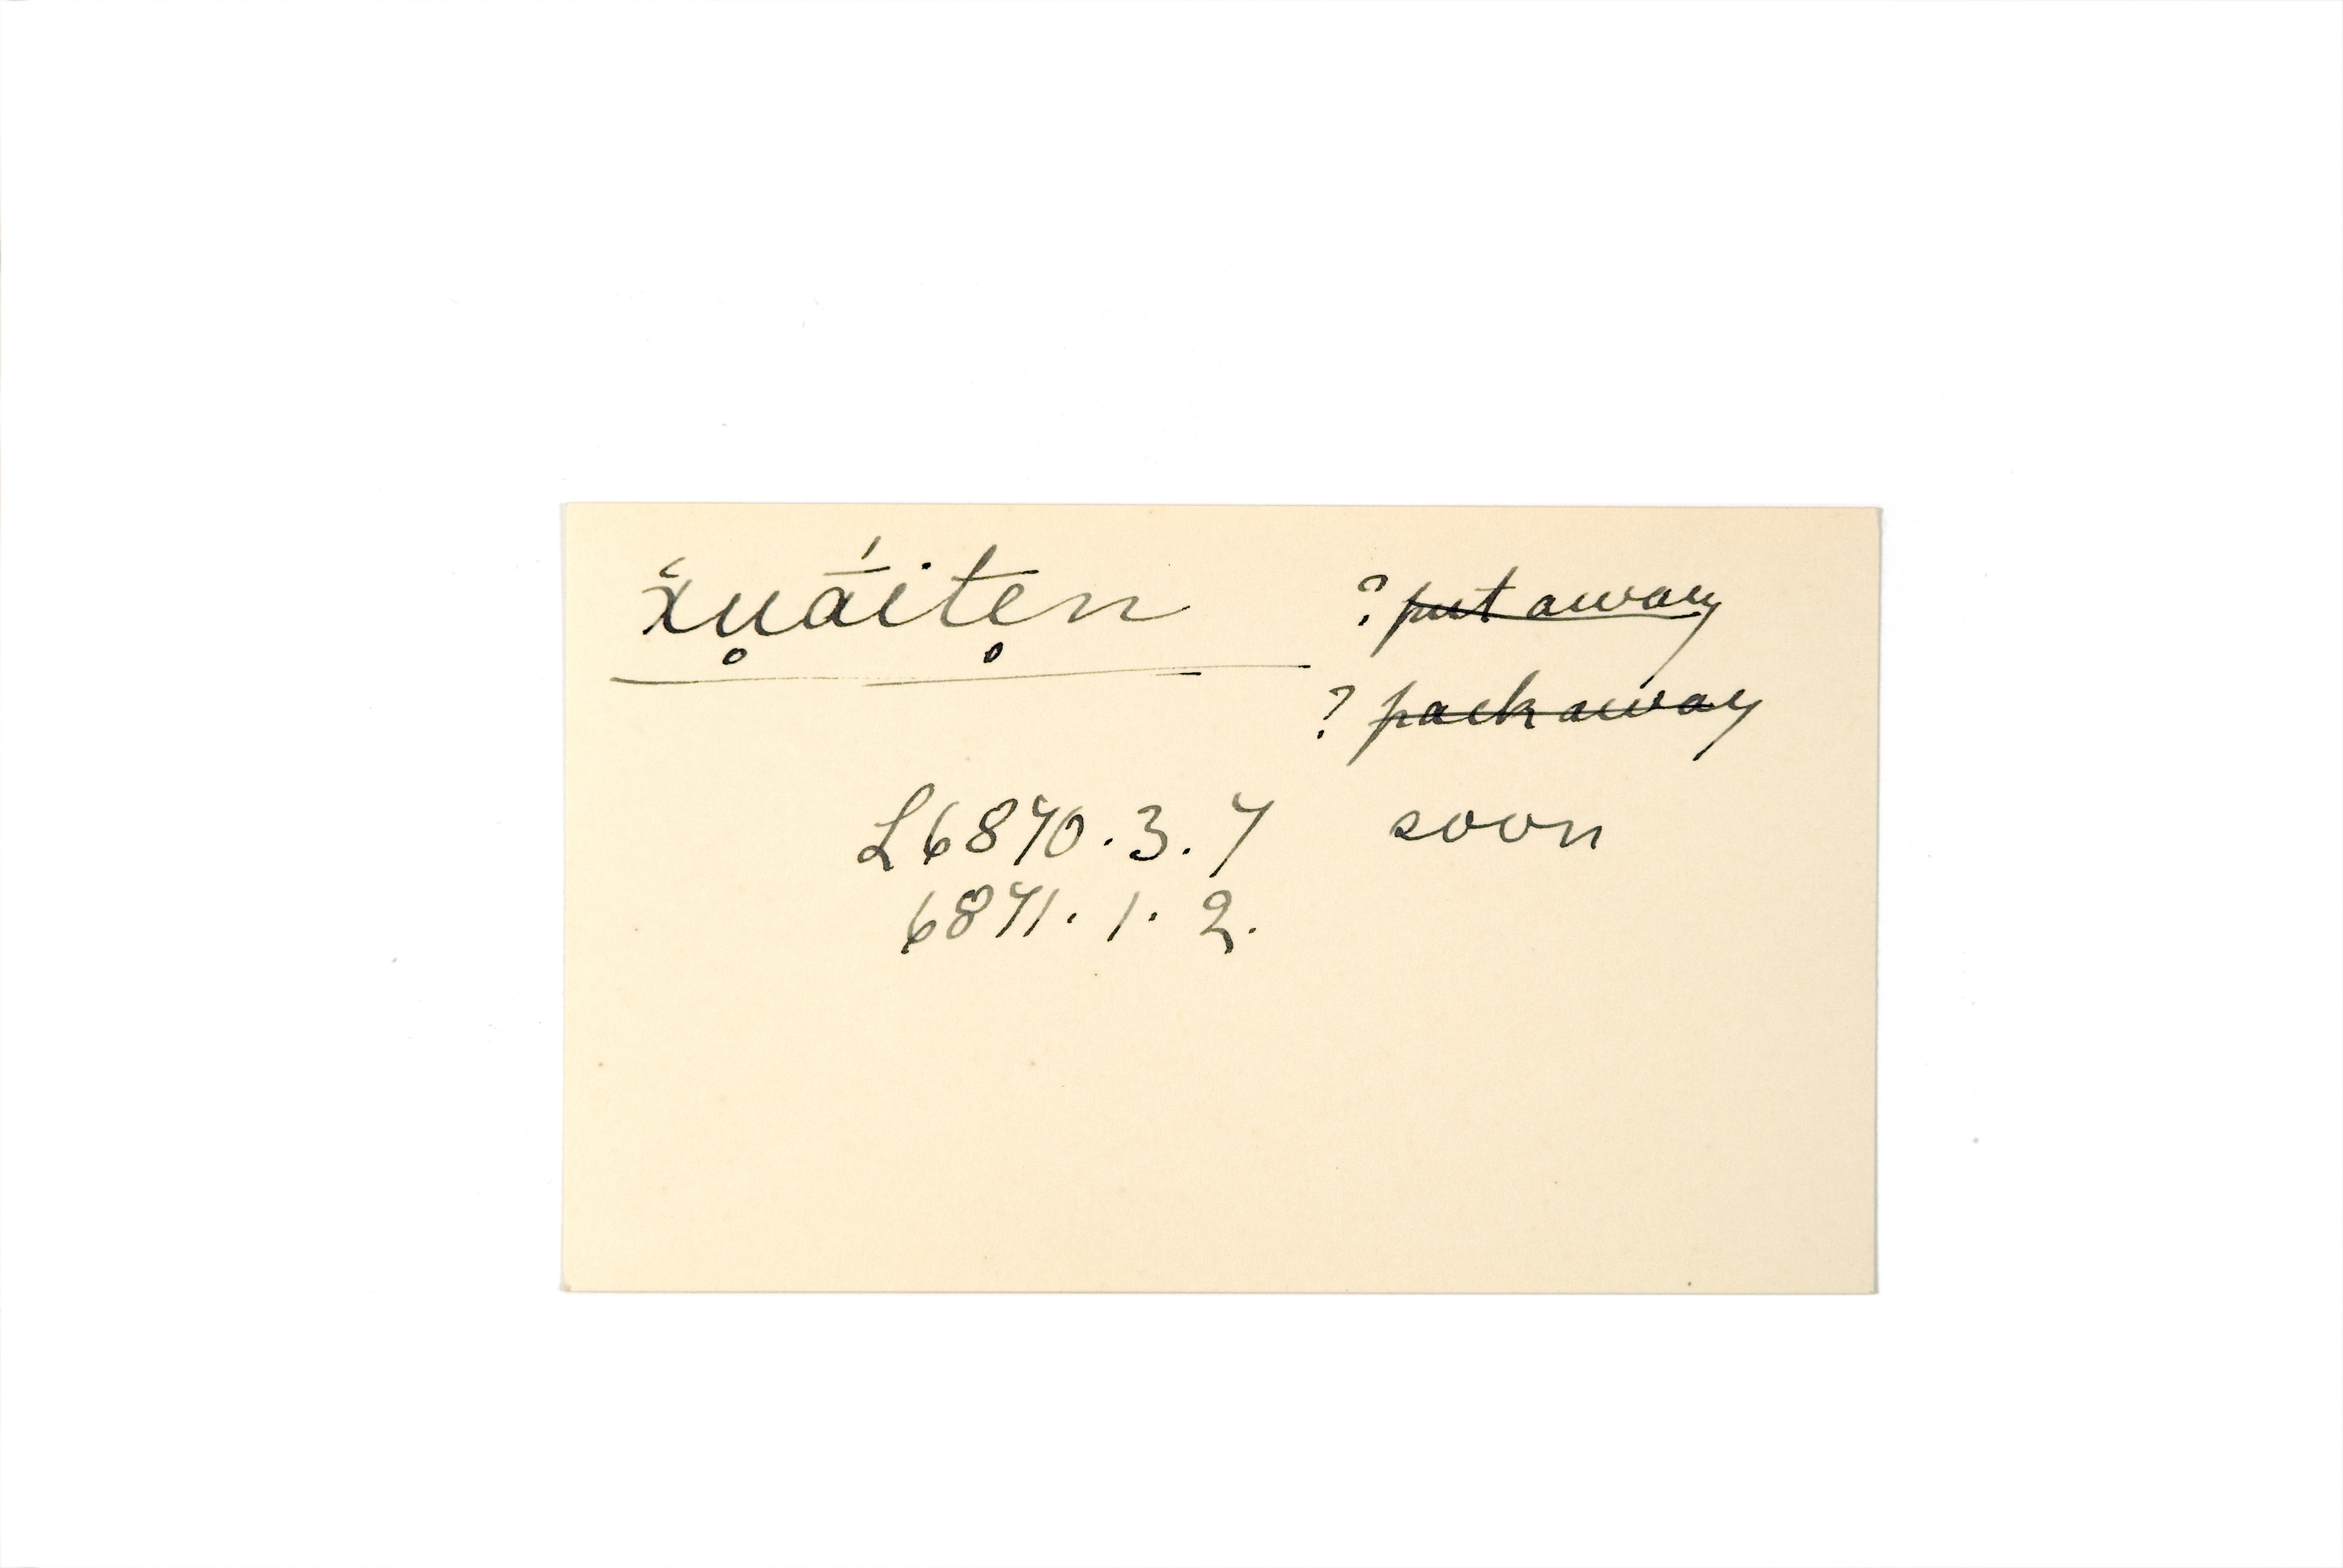 x̌u̥ā́ite̥n ? ~~put away~~
? ~~pack away~~
L6870.3.7 soon
6871.1.2.